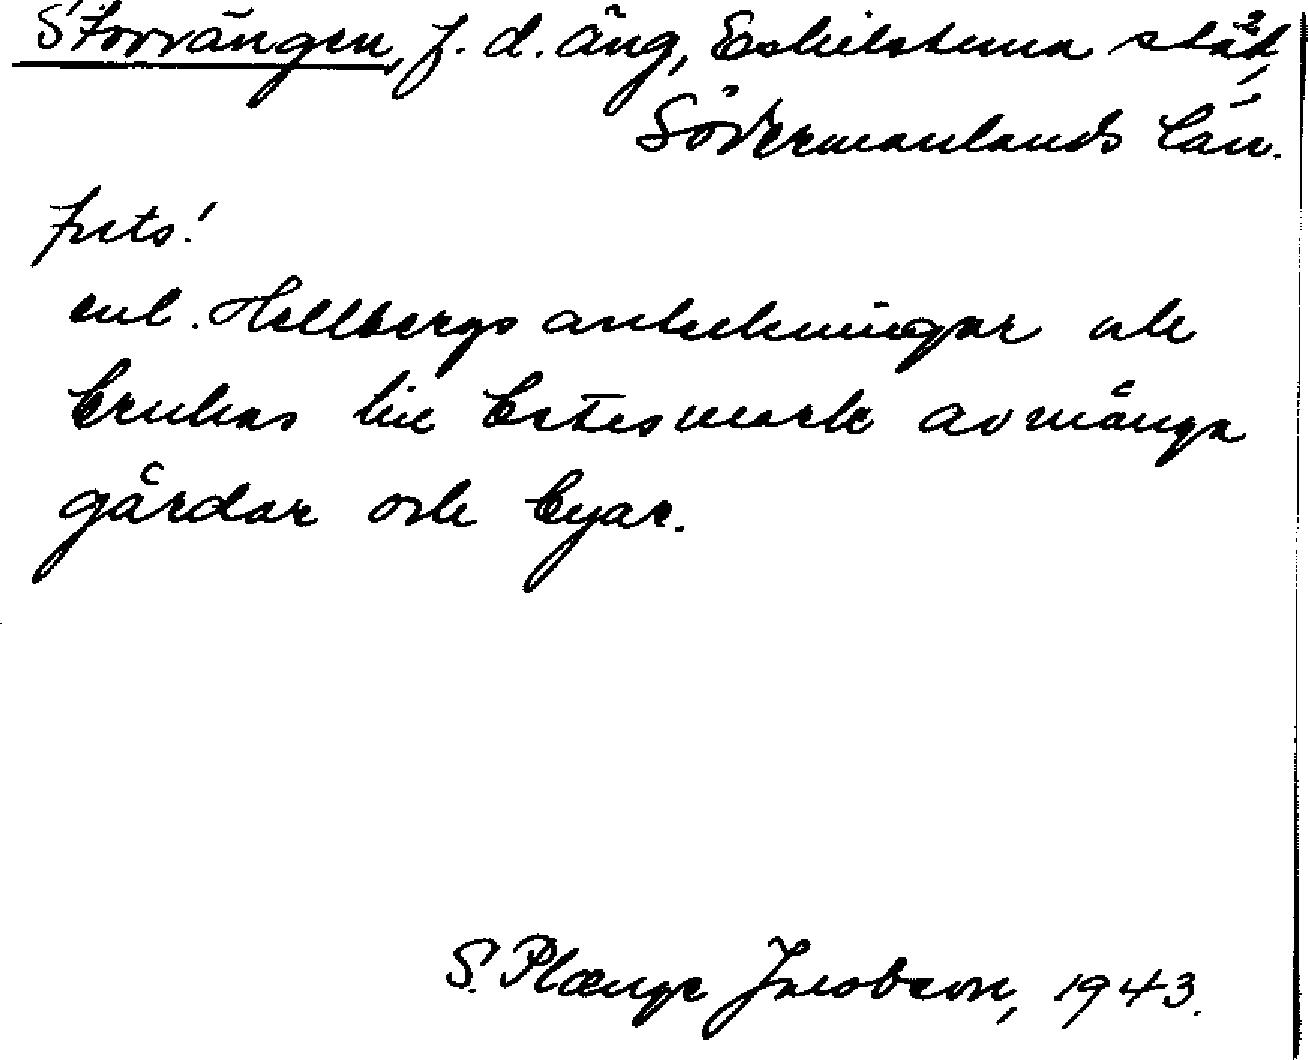 Storrängen, f.d. äng, Eskilstuna stad,
Södermanlands län.
forts!
enl. Hellbergs anteckningar och
brukas till betesmark av många
gårdar och byar.
S. Plænge Jacobson, 1943.